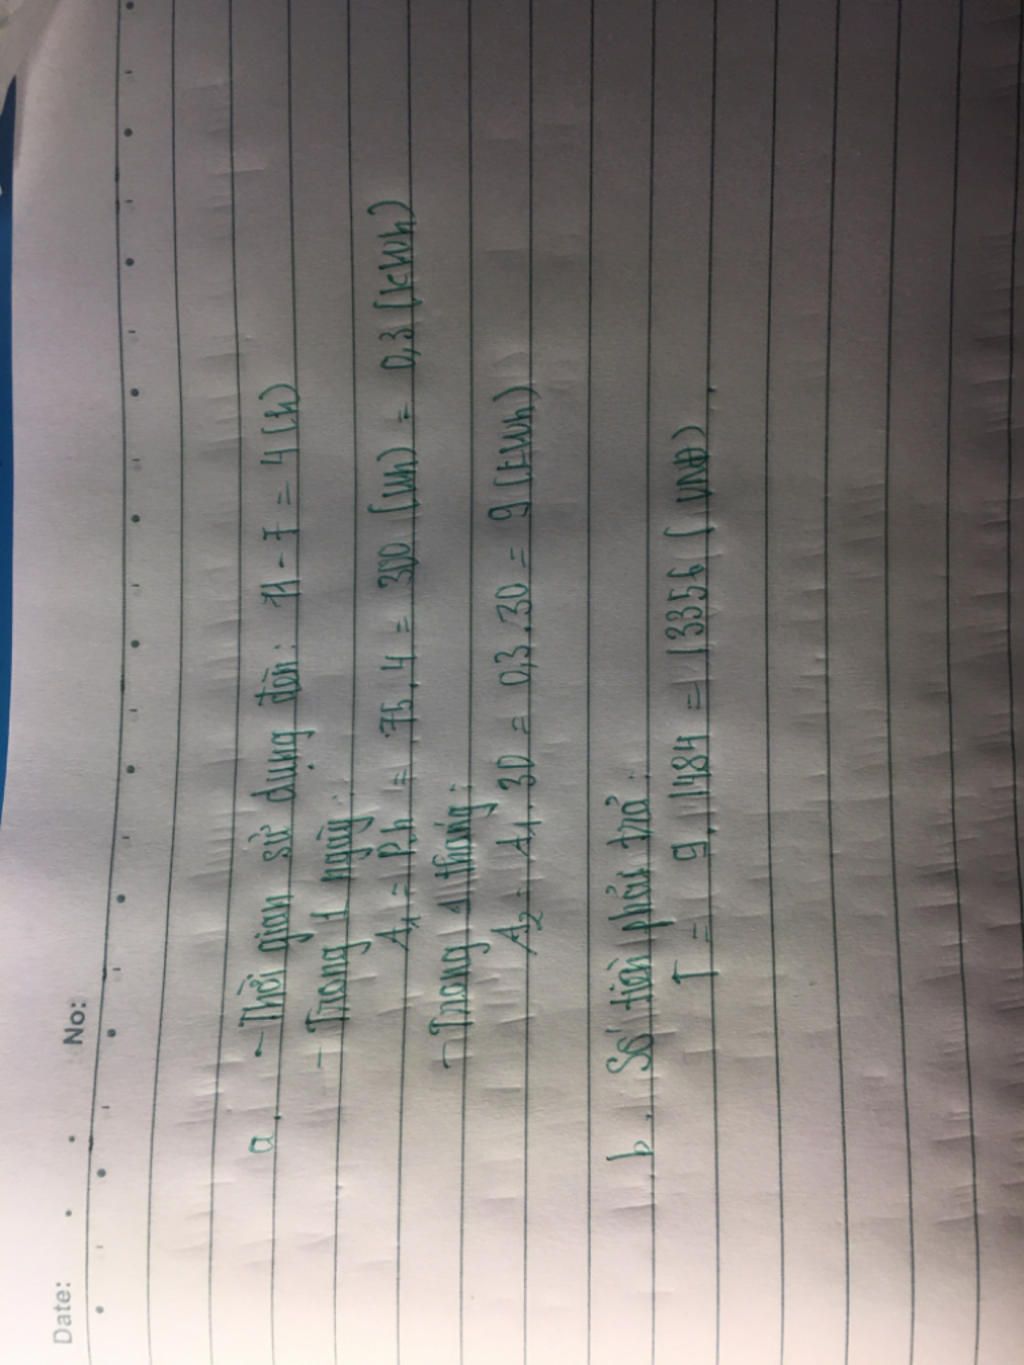 Date: No:
a. - Thời gian sử dụng đèn: 11 - 7 = 4 (h)
- Trong 1 ngày:
A1 = P.h = 75.4 = 300 (Wh) = 0,3 (kWh)
- Trong 1 tháng:
A2 = A1.30 = 0,3.30 = 9 (kWh)
b. Số tiền phải trả:
T = 9.1484 = 13356 (VNĐ).